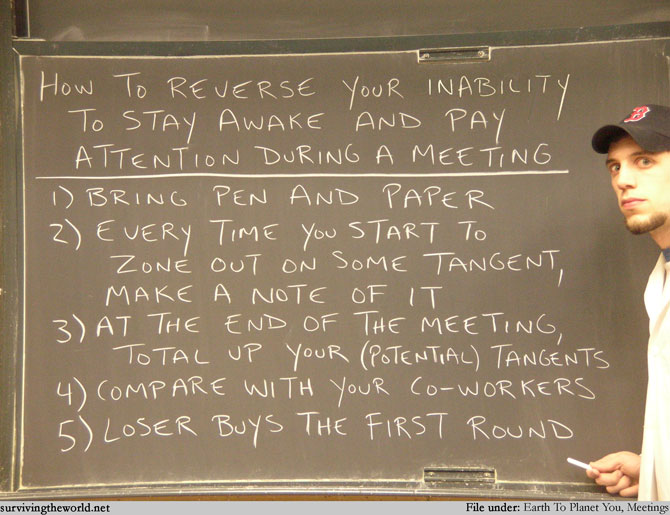 HOW TO REVERSE YOUR INABILITY
TO STAY AWAKE AND PAY
ATTENTION DURING A MEETING
1) BRING PEN AND PAPER
2) EVERY TIME YOU START TO
ZONE OUT ON SOME TANGENT,
MAKE A NOTE OF IT
3) AT THE END OF THE MEETING,
TOTAL UP YOUR (POTENTIAL) TANGENTS
4) COMPARE WITH YOUR CO-WORKERS
5) LOSER BUYS THE FIRST ROUND
B
survivingtheworld.net
File under: Earth To Planet You, Meetings